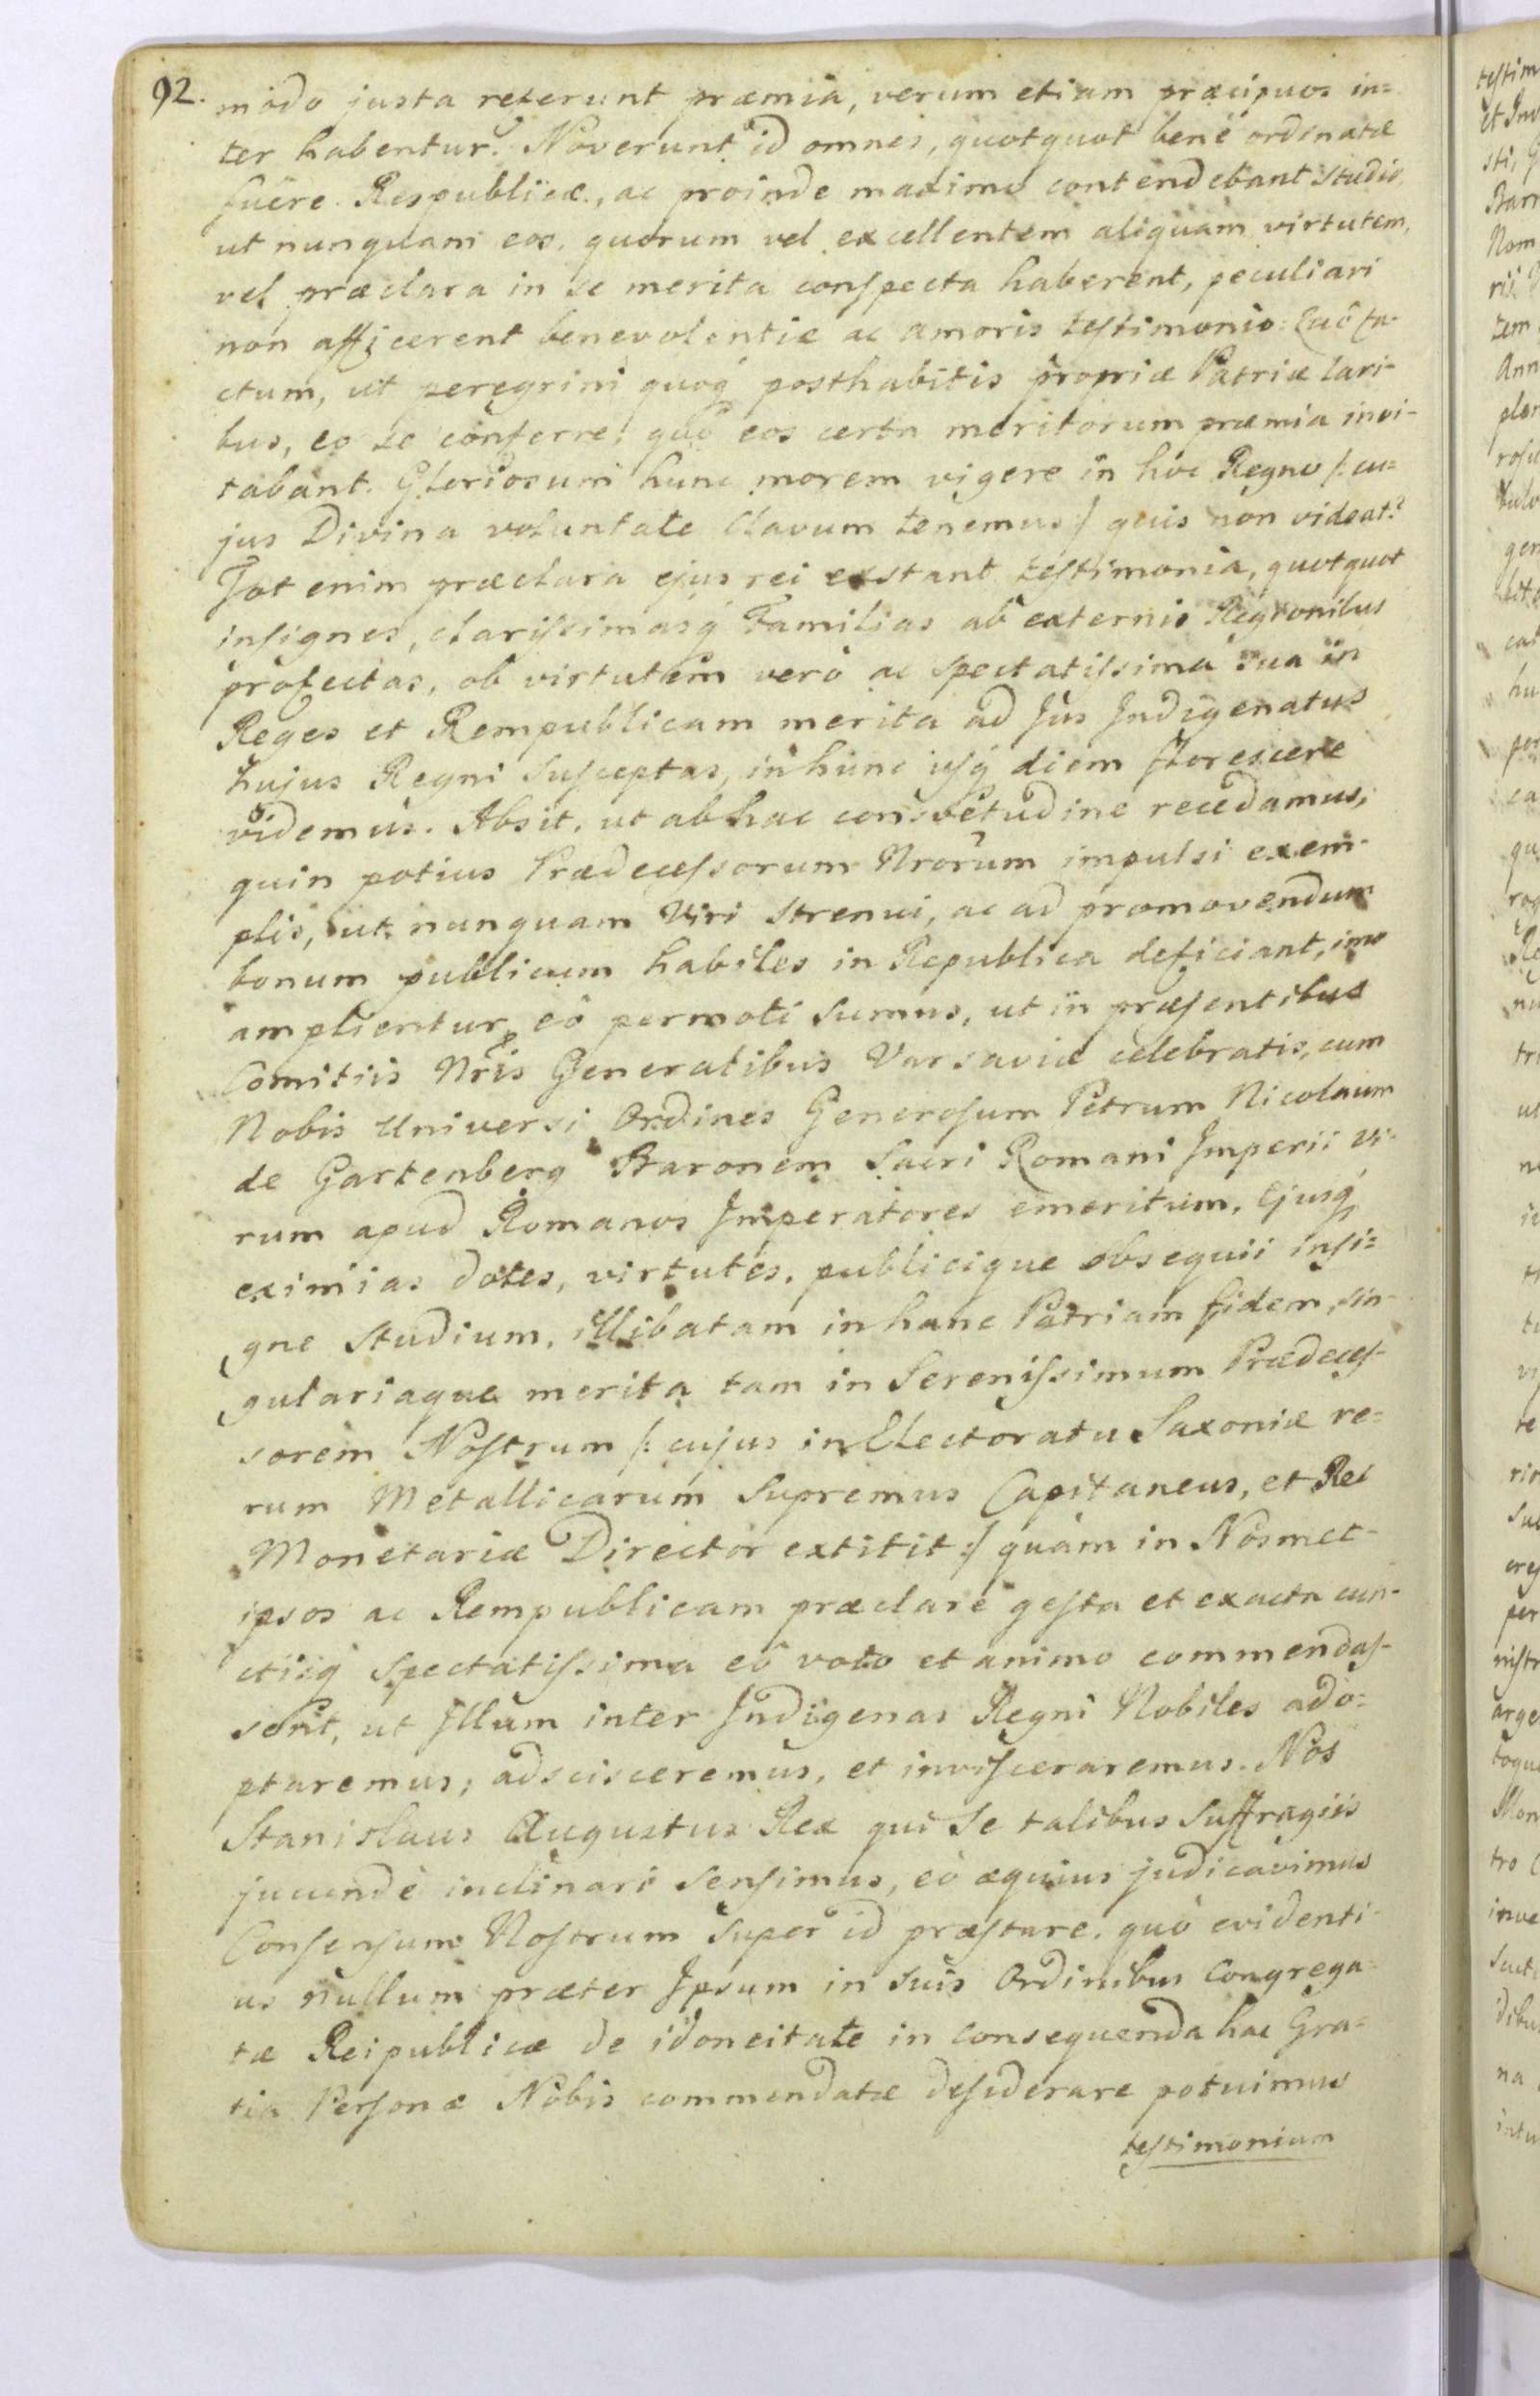 92.
modo justa referunt præmia, verum etiam præcipuos in=
ter habentur. Noverunt id omnes, quotquot benè ordinatæ
fuêre Respublicæ, ac proinde maximo contendebant studio,
ut nunquam eos, quorum vel excellentem aliquam virtutem,
vel præclara in se merita conspecta haberent, peculiari
non afficerent benevolentiæ ac amoris testimonio: Quô fa-
ctum, ut peregrini quoq́ posthabitis propriæ Patriæ lari-
bus, eo se conferre, quô eos certa meritorum præmia invi-
tabant. Gloriosum hunc morem vigere in hoc Regno /: cu=
jus Divina voluntate Clavum tenemus :/ quis non videat?
Tot enim præclara ejus rei exstant testimonia, quotquot
insignes, clarissimasq́ Familias ab externis Regionibus
profectas, ob virtutem verò ac spectatissima sua in
Reges et Rempublicam merita ad Jus Indigenatus
hujus Regni susceptas, in hunc usq́ diem florescere
videmus. Absit, ut ab hac consvetudine recedamus,
quin potius Prædecessorum Nrorum impulsi exem-
plis, ut nunquam Viri strenui, ac ad promovendum
bonum publicum habiles in Republica deficiant, imo
amplientur, eô permoti sumus, ut in præsentibus
Comitiis Nris Generalibus Varsaviæ celebratis, cum
Nobis Universi Ordines Generosum Petrum Nicolaum
de Gartenberg Baronem Sacri Romani Imperii vi-
rum apud Romanos Imperatores emeritum, Ejusq́
eximias dotes, virtutes, publicique obsequii insi=
gne studium, illibatam in hanc Patriam fidem, sin-
gulariaque merita tam in Serenissimum Prædeces-
sorem Nostrum /: cujus in Electoratu Saxoniæ re=
rum Metallicarum Supremus Capitaneus, et Rei
Monetariæ Director extitit :/ quàm in Nosmet-
ipsos ac Rempublicam præclarè gesta et exacta cun-
ctisq́ spectatissima eô voto et animo commendas-
sent, ut Illum inter Indigenas Regni Nobiles ado=
ptaremus, adscisceremus, et invisceraremus. Nos
Stanislaus Augustus Rex qui Se talibus Suffragiis
jucundè inclinari sensimus, eò æquius judicavimus
Consensum Nostrum super id præstare, quò evidenti-
us nullum præter Ipsum in suis Ordinibus Congrega-
tæ Reipublicæ de idoneitate in consequenda hac Gra=
tia Personæ Nobis commendatæ desiderare potuimus
testimonium